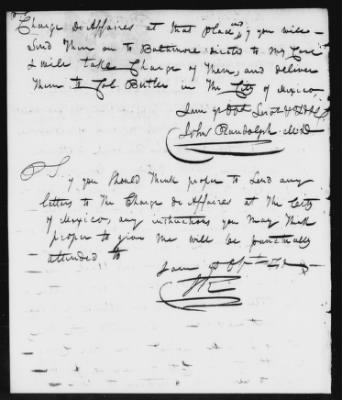 Charge de Affaires at that place, if you will
Send them on to Baltimore directed to my Care
I will take Charge of them, and deliver
them to Col Butler in the City of Mexico
I am yr Obt Servt
John Randolph
P.S. if you Should think proper to Send any
letters to the Charge de Affaires at the City
of Mexico, any instructions you may think
proper to give me will be punctually
attended to
I am yr